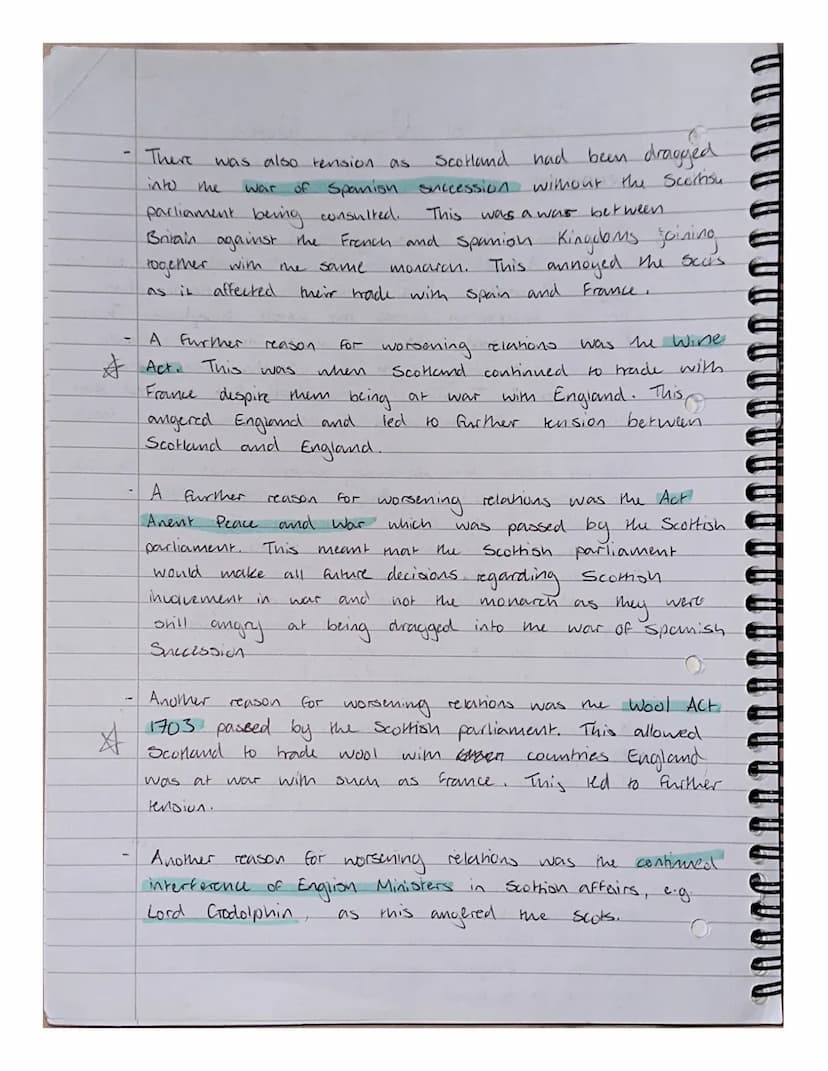 - There was also tension as Scotland had been dragged
into the war of Spanish succession without the Scottish
parliament being consulted. This was a war between
Britain against the French and Spanish Kingdoms joining
together with the same monarch. This annoyed the Scots
as it affected their trade with Spain and France.
- A further reason for worsening relations was the Wine
Act. This was when Scotland continued to trade with
France despite them being at war with England. This
angered England and led to further tension between
Scotland and England.
- A further reason for worsening relations was the Act
Anent Peace and War which was passed by the Scottish
parliament. This meant that the Scottish parliament
would make all future decisions regarding Scottish
involvement in war and not the monarch as they were
still angry at being dragged into the war of Spanish
Succession
- Another reason for worsening relations was the Wool Act
1703 passed by the Scottish parliament. This allowed
Scotland to trade wool with countries England
was at war with such as France. This led to further
tension.
- Another reason for worsening relations was the continued
interference of English Ministers in Scottish affairs, e.g.
Lord Godolphin, as this angered the Scots.